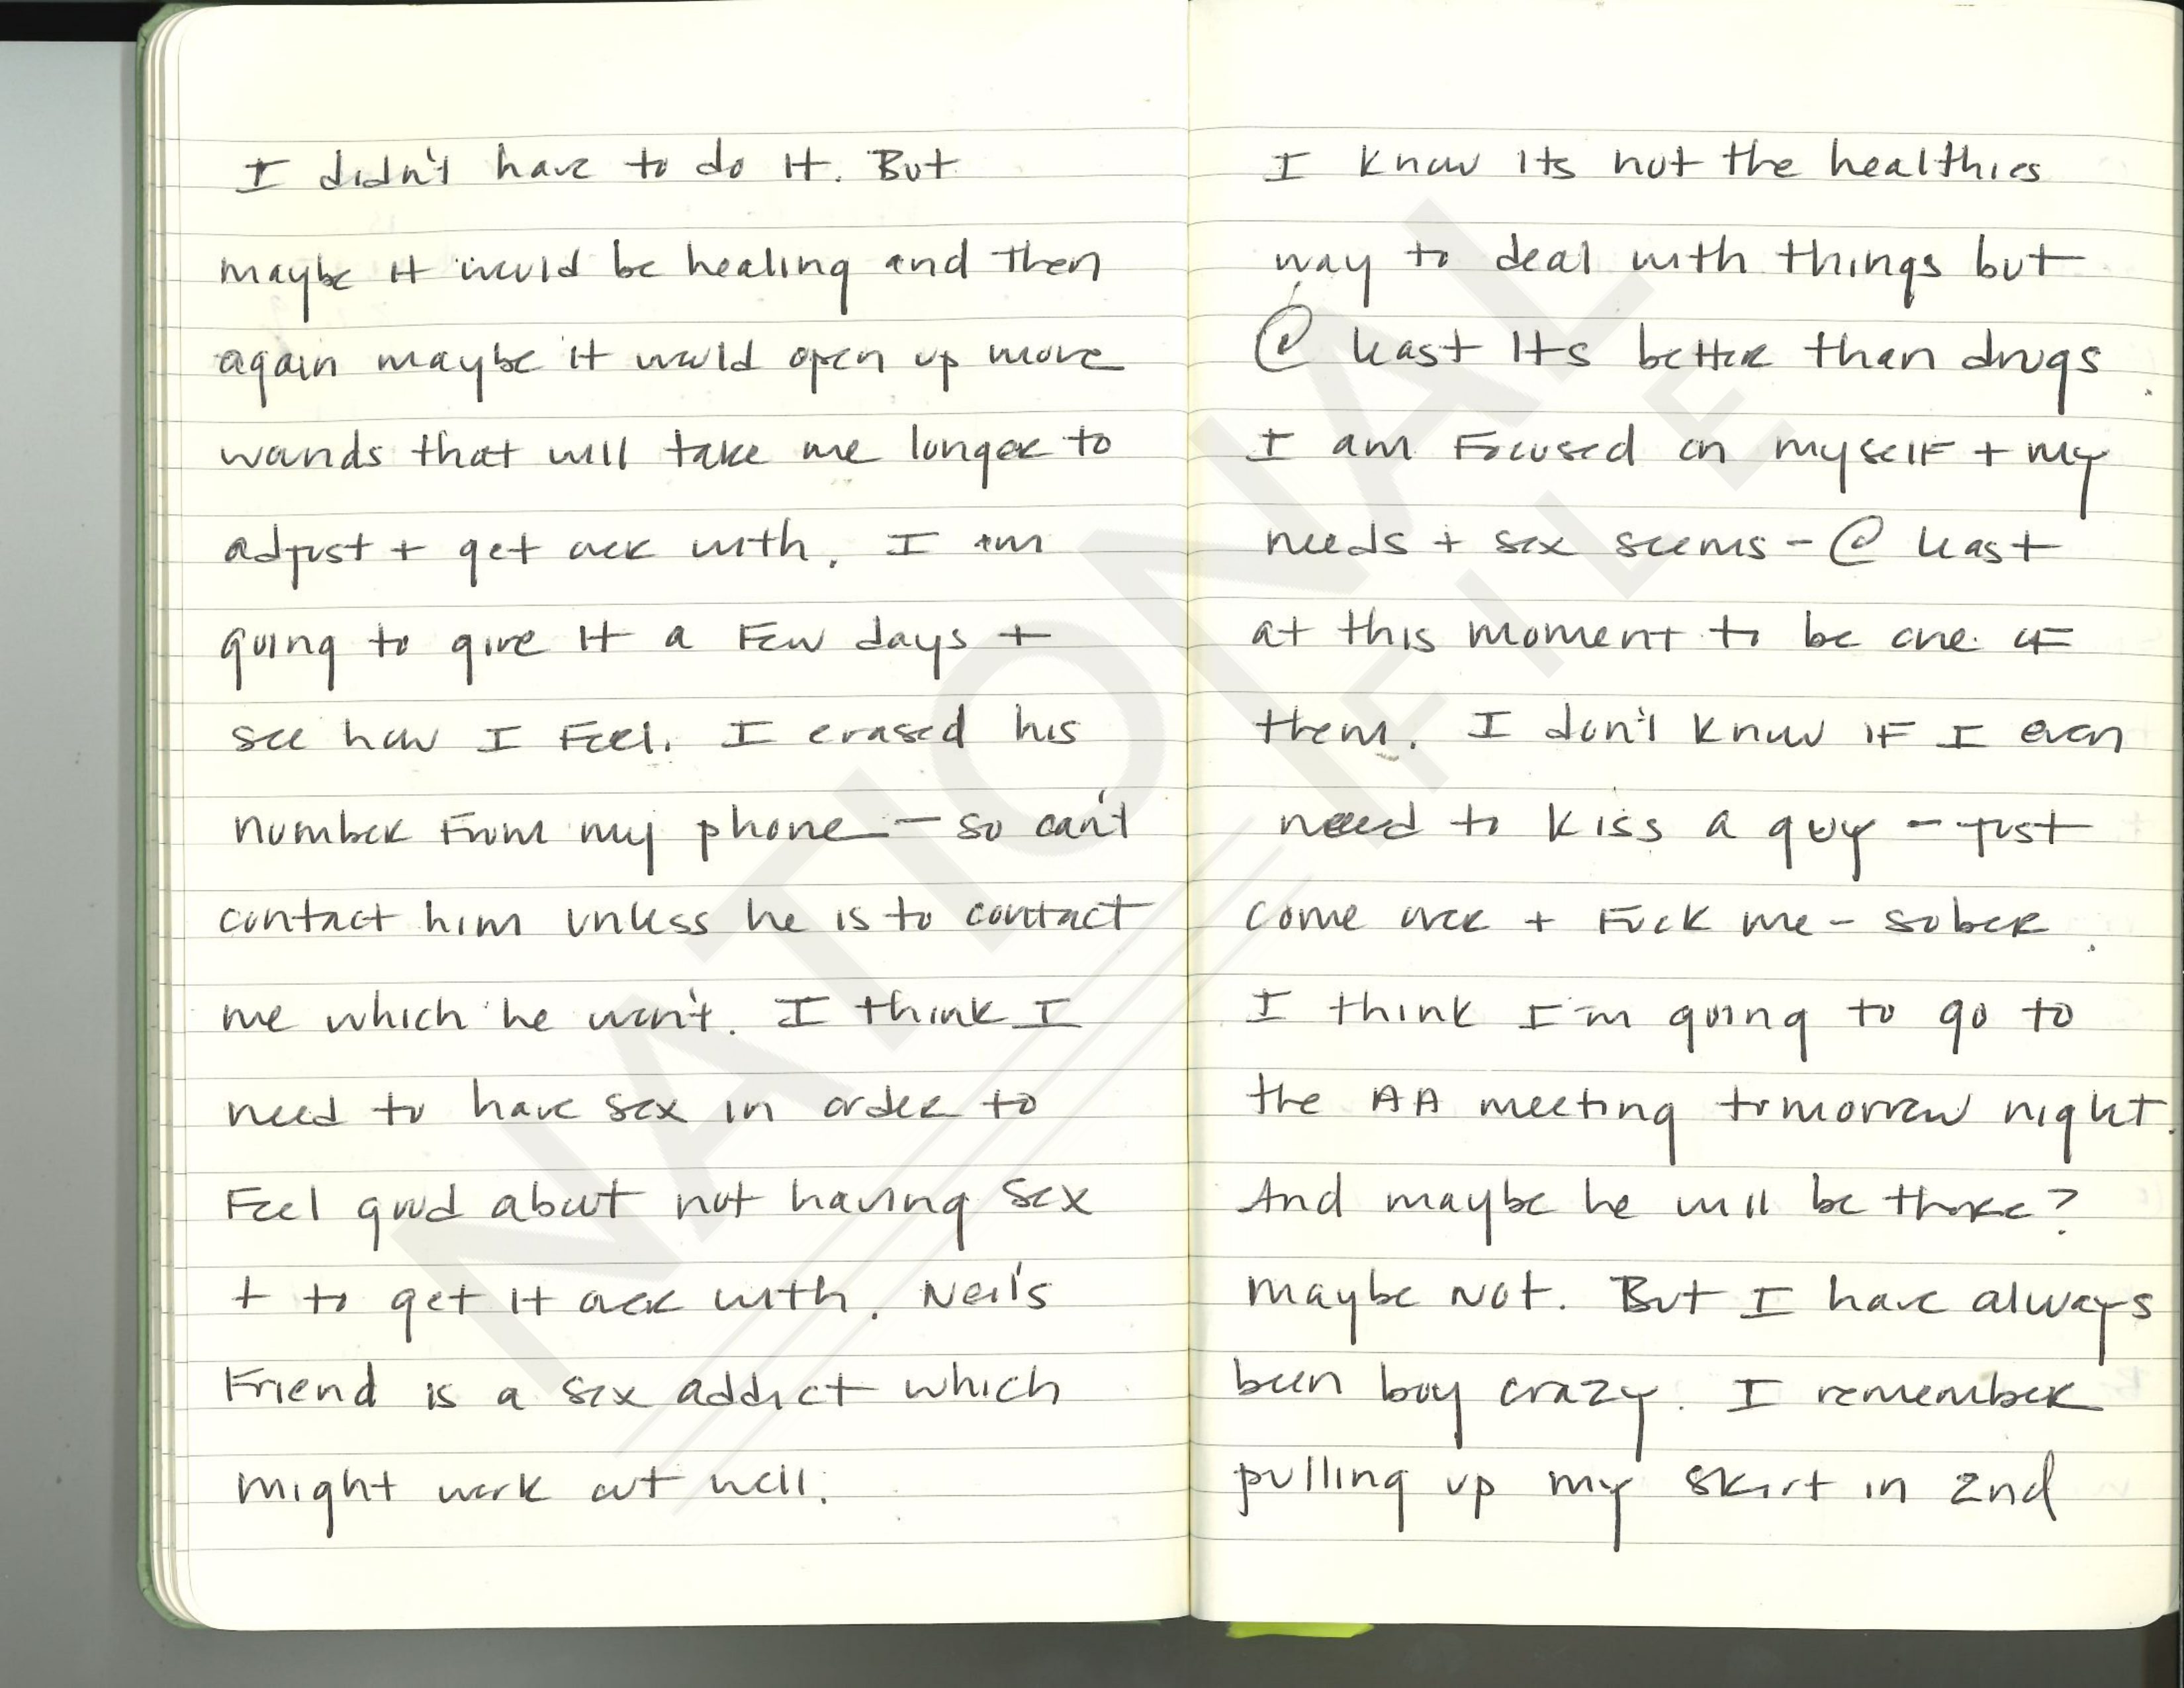 I didn't have to do it. But
maybe it would be healing and then
again maybe it would open up more
wounds that will take me longer to
adjust + get over with. I am
going to give it a few days +
see how I feel. I erased his
number from my phone - so can't
contact him unless he is to contact
me which he won't. I think I
need to have sex in order to
feel good about not having sex
+ to get it over with. Neil's
friend is a sex addict which
might work out well.
I know its not the healthies
way to deal with things but
@ least its better than drugs.
I am focused on myself + my
needs + sex seems - @ least
at this moment to be one of
them. I don't know if I even
need to kiss a guy - just
come over + fuck me - sober.
I think I'm going to go to
the AA meeting tomorrow night.
And maybe he will be there?
maybe not. But I have always
been boy crazy. I remember
pulling up my skirt in 2nd
NATIONAL
FILE